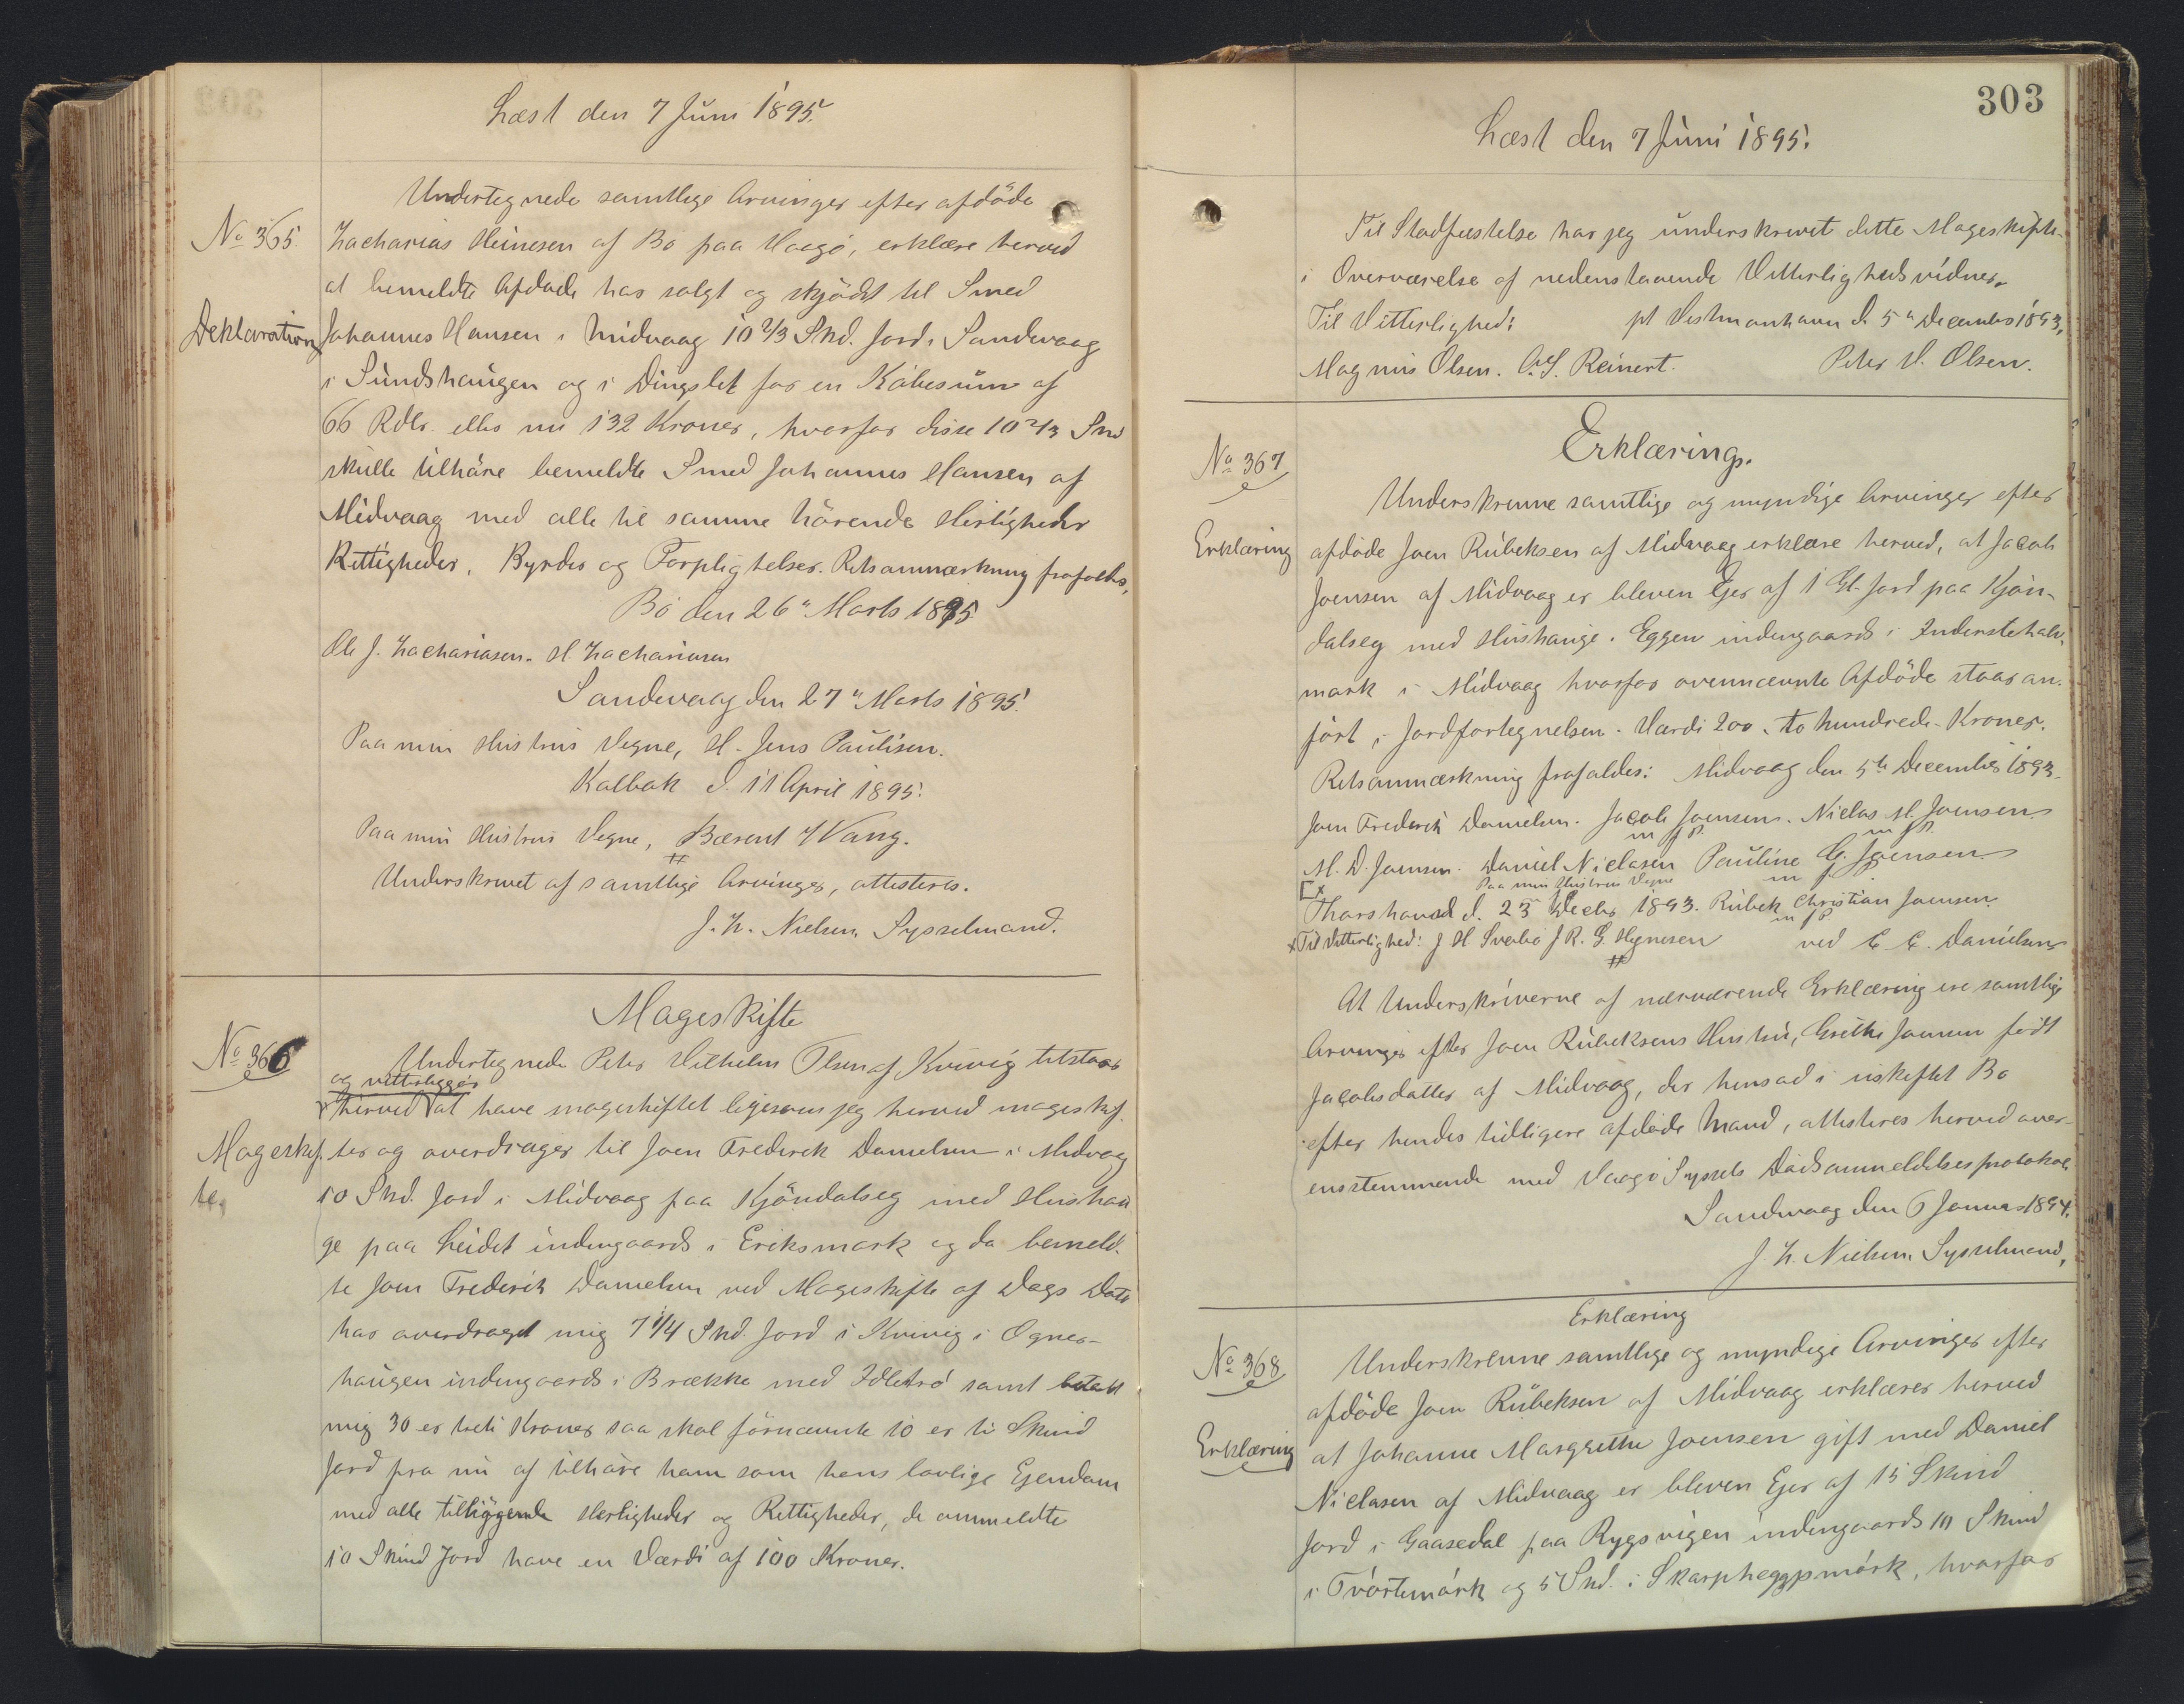 Læst den 7 Juni 1895.
No 365.
Deklaration
Undertegnede samtlige Arvinger efter afdöde
Zacharias Heinesen af Bö paa Vaagö, erklære herved
at bemeldte Afdöde har solgt og skjödet til Smed
Johannes Hansen i Midvaag 10 2/3 Skd. Jord i Sandevaag
i Sundshaugen og i Dingslet for en Köbesum af
66 Rdlr. eller nu 132 Kroner, hvorfor disse 10 2/3 Skd
skulle tilhöre bemeldte Smed Johannes Hansen af
Midvaag med alle til samme hörende Herligheder
Rettigheder, Byrder og Forpligtelser. Retsanmærkning frafaldes.
Bö den 26 Marts 1895.
Ole J. Zachariasen. H. Zachariasen
Sandevaag den 27 Marts 1895.
Paa min Hustrus Vegne, H. Jens Paulisen.
Kalbak d. 11 April 1895.
Paa min Hustrus Vegne, Bærent Vang.
Underskrevet af samtlige Arvinger, attesteres.
J. Z. Nielsen, Sysselmand.
No 366
Mageskif-
te,
Mageskifte
Undertegnede Peter Vilhelm Olsen af Kvivig tilstaar
og vitterliggör
herved at have mageskiftet ligesom jeg herved mageskif-
ter og overdrager til Joen Frederik Danielsen i Midvaag
10 Skd. Jord i Midvaag paa Kjöndalseg med Hushau
ge paa Leidet indengaards i Eriksmark og da bemeld-
te Joen Frederik Danielsen ved Mageskifte af Dags Dato
har overdraget mig 7 1/4 Skd. Jord i Kvivig i Ogner-
haugen indengaards i Brekke med Idletrö samt betalt
mig 30 er treti Kroner saa skal fornævnte 10 er ti Skind
Jord fra nu af tilhöre ham som hans lovlige Ejendom
med alle tilliggende Herligheder og Rettigheder, de ommeldte
10 Skind Jord have en Værdi af 100 Kroner.
303
Læst den 7 Juni 1895.
Til Stadfæstelse har jeg underskrevet dette Mageskifte
i Overværelse af nedenstaaende Vitterlighedsvidner.
Til Vitterlighed: pt Vestmanhavn d. 5 December 1893,
Magnus Olsen. O. S. Reinert. Peter V. Olsen.
No 367
Erklæring
Erklæring.
Underskrevne samtlige og myndige Arvinger efter
afdöde Joen Rübeksen af Midvaag erklære herved, at Jacob
Joensen af Midvaag er bleven Ejer af 1 Gl. Jord paa Kjön-
dalseg med Hushauge i Eggen indengaards i Inderstehal-
mark i Midvaag hvorfor ovennævnte Afdöde staar an-
fört i Jordfortegnelsen. Værdi 200 - to hundrede - Kroner.
Retsanmærkning frafaldes: Midvaag den 5te December 1893.
Joen Frederik Danielsen. Jacob Joensen. Niclas M. Joensen
m f P. m f P.
M. D. Joensen. Daniel Niclasen Pauline G. Joensen
Paa min Hustrus Vegne m f P.
Thorshavn d. 23 Decbr 1893. Rübek Christian Joensen
m f P
Til Vitterlighed: J H Sverbo J R. G. Hejnesen ved C C. Danielsen
At Underskriverne af nærværende Erklæring ere samtlige
Arvinger efter Joen Rübeksens Hustru, Grethe Joensen födt
Jacobsdatter af Midvaag, der hensad i uskiftet Bo
efter hendes tidligere afdöde Mand, attesteres herved over-
ensstemmende med Vaagö Syssels Dödsanmeldelsesprotokol.
Sandvaag den 6 Januar 1894.
J. Z. Nielsen Sysselmand,
No 368
Erklæring
Erklæring
Underskrevne samtlige og myndige Arvinger efter
afdöde Joen Rübeksen af Midvaag erklærer herved
at Johanne Margrethe Joensen gift med Daniel
Niclasen af Midvaag er bleven Ejer af 15 Skind
Jord i Gaasedal paa Rygsvigen indengaards 10 Skind
i Tvörtemörk og 5 Skd. i Skarpheggpmörk, hvorfor